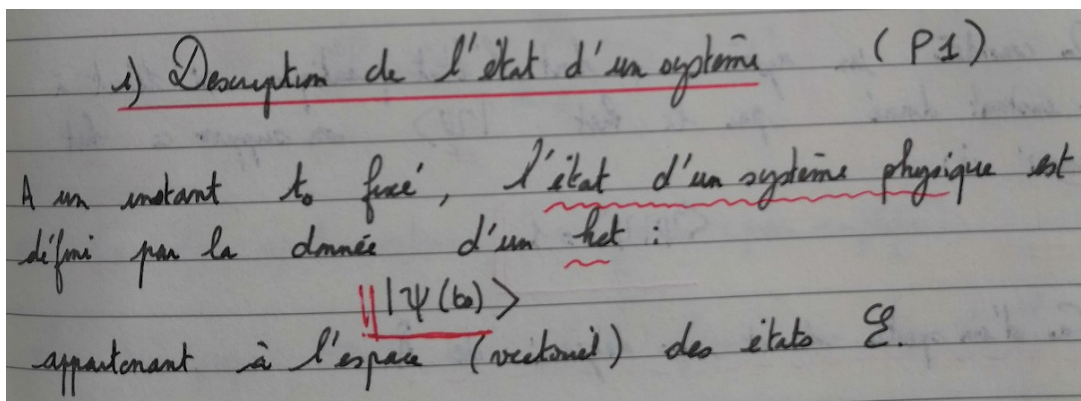 1) Description de l'état d'un système (P1)
A un instant t₀ fixé, l'état d'un système physique est
défini par la donnée d'un ket :
|ψ(t₀)>
appartenant à l'espace (vectoriel) des états Ɛ.